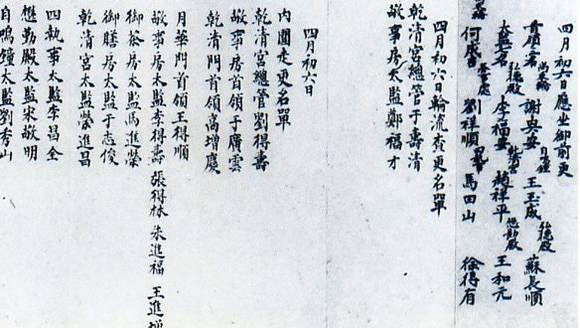 四月初六日應坐御前更
謝央安 王玉成 蘇長順
李福安 趙祥平 王和元
何成 劉祥順 馬田山 徐得有
四月初六日輪流查更名單
乾清宮總管于壽清
敬事房太監鄭福才
四月初六日
內圍走更名單
乾清宮總管劉得壽
敬事房首領于廣雲
乾清門首領高增慶
月華門首領王得順
敬事房太監李得壽 張得林 朱進福 王進增
御茶房太監馬進榮
御膳房太監于志俊
乾清宮太監榮進昌
四執事太監李昌全
懋勤殿太監宋敬明
自鳴鐘太監劉秀山